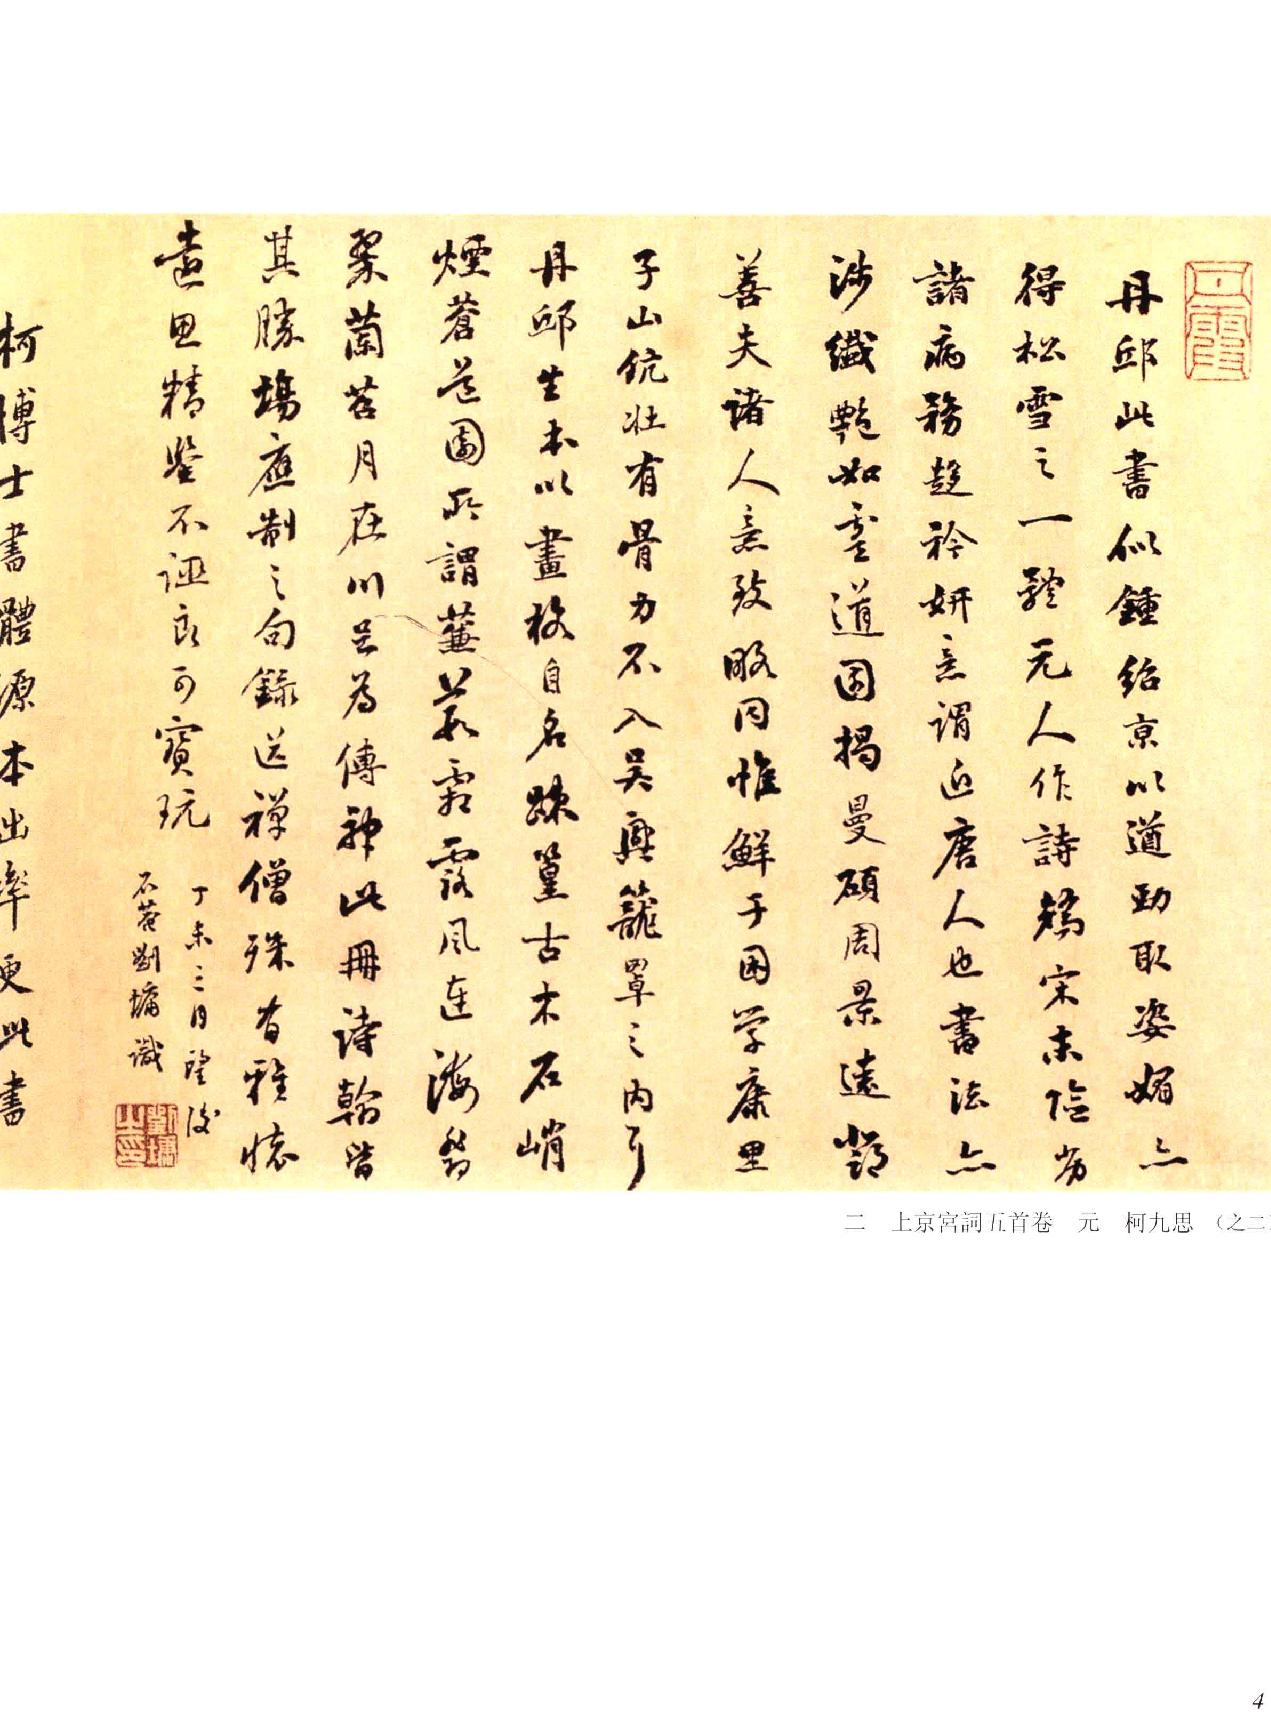 丹霞
丹邱此書似鍾紹京以遒勁取姿媚亦
得松雪之一體元人作詩矯宋末陰劣
諸病務趨衿妍意謂近唐人也書法亦
涉纖艷如虞道園揭曼碩周景遠鄧
善夫諸人意致略同惟鮮于困学康里
子山伉壯有骨力不入吴興籠罩之内耳
丹邱生本以畫校自名踈篁古木石峭
煙蒼道園所謂蒹葭霜露風連海翁
翠蘭苕月在川足為傳神此冊詩翰皆
其勝場應制之句錄送禅僧殊有雅懷
遠思精鉴不誣良可寶玩
丁未三月望後
石菴劉墉識
劉墉之印
柯博士書體源本出率更此書
二 上京宮詞五首卷 元 柯九思 (之二)
4